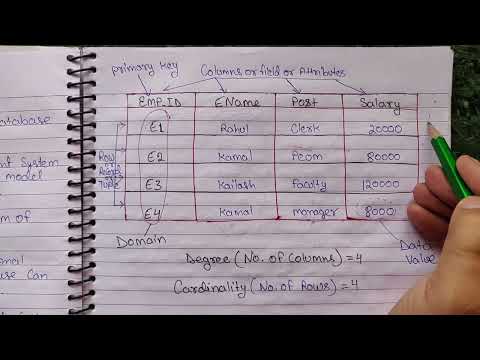 Primary Key
Columns or field or Attributes
EMP_ID EName Post Salary
E1 Rahul Clerk 20000
E2 Kamal Peom 80000
E3 Kailash faculty 120000
E4 Kamal manager 8000
Row
or
Domain
Data
Value
Degree (No. of Columns) = 4
Cardinality (No. of Rows) = 4
atabase
System
model
m of
use Can